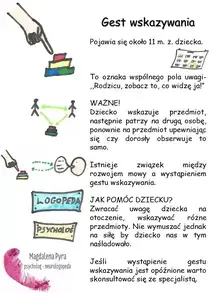 Gest wskazywania
Pojawia się około 11 m. ż. dziecka.
To oznaka wspólnego pola uwagi-
„Rodzicu, zobacz to, co widzę ja!"
WAŻNE!
Dziecko wskazuje przedmiot,
następnie patrzy na drugą osobę,
ponownie na przedmiot upewniając
się czy dorosły obserwuje to
samo.
Istnieje związek między
rozwojem mowy a wystąpieniem
gestu wskazywania.
LOGOPEDA
PSYCHOLOG
JAK POMÓC DZIECKU?
Zwracać uwagę dziecka na
otoczenie, wskazywać różne
przedmioty. Nie wymuszać jednak
na siłę by dziecko nas w tym
naśladowało.
Jeśli wystąpienie gestu
wskazywania jest opóźnione warto
skonsultować się z specjalistą.
Magdalena Pyra
psycholog - neurologopeda